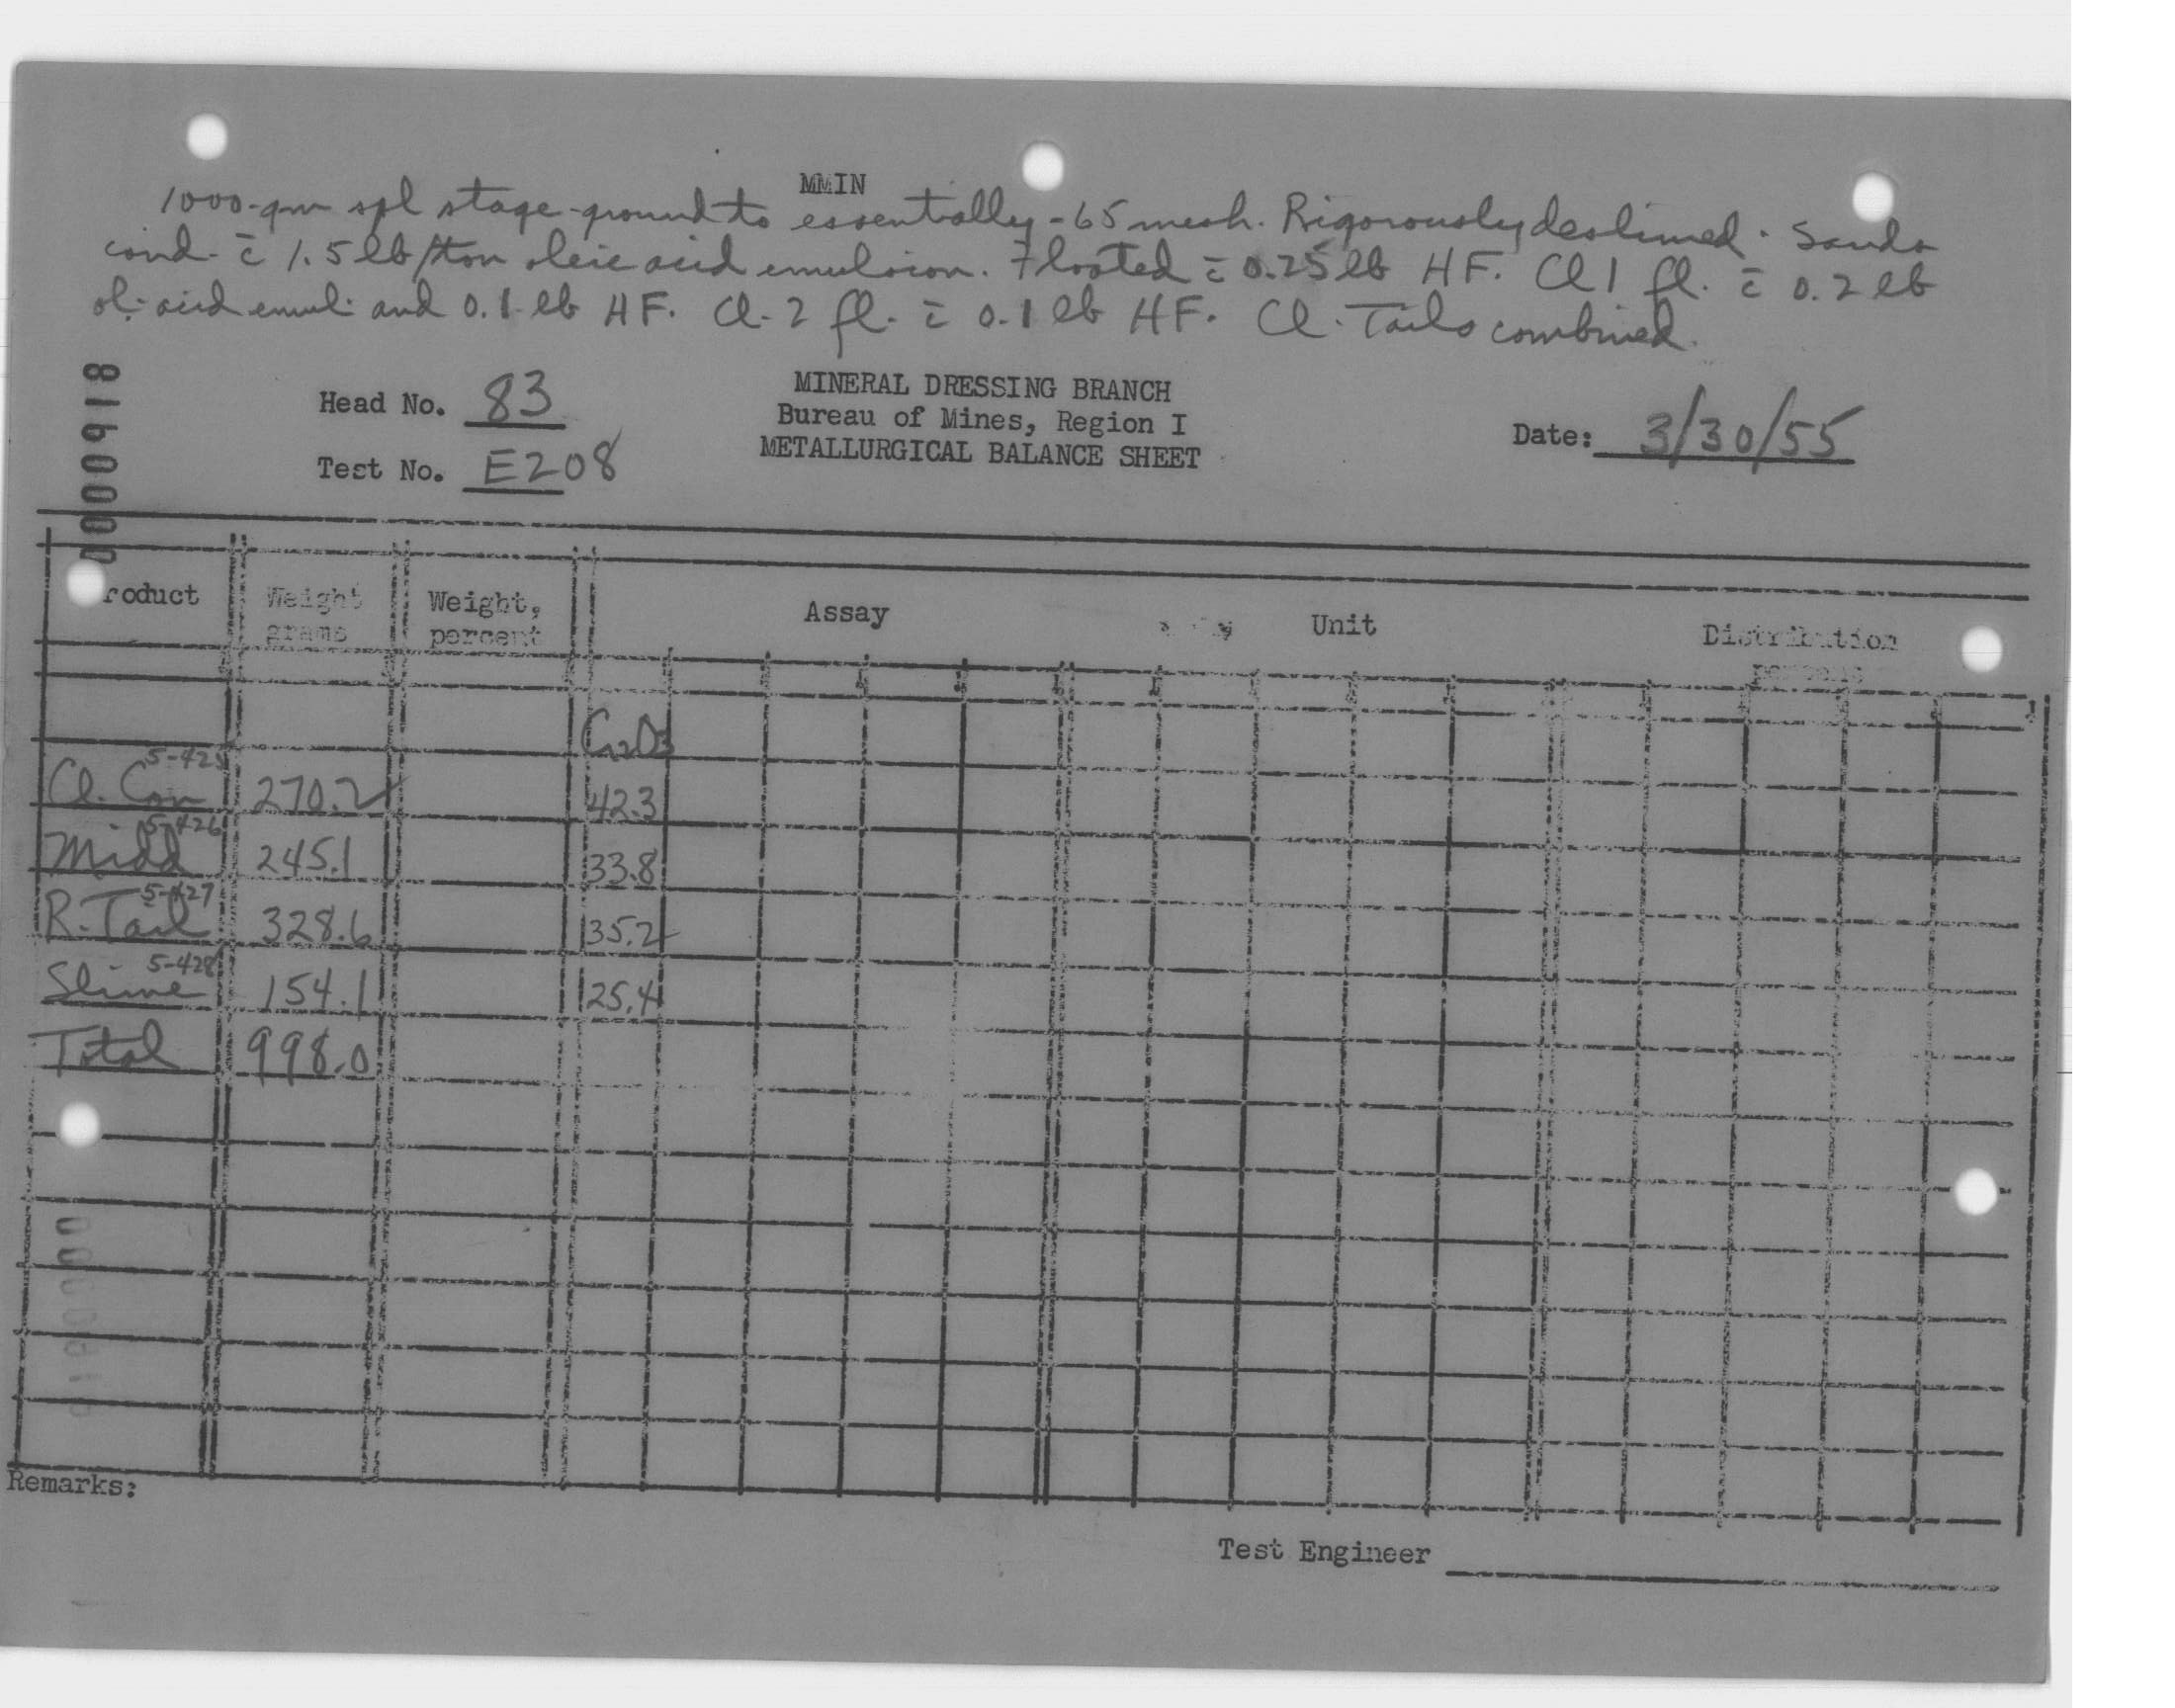 MMIN
1000-gm spl stage-ground to essentially -65 mesh. Rigorously deslimed. Sands
cond. c̄ 1.5 lb/ton oleic acid emulsion. Floated c̄ 0.25 lb HF. Cl 1 fl. c̄ 0.2 lb
ol. acid emul. and 0.1 lb HF. Cl. 2 fl. c̄ 0.1 lb HF. Cl. Tails combined.
Head No. 83
MINERAL DRESSING BRANCH
Bureau of Mines, Region I
METALLURGICAL BALANCE SHEET
Date: 3/30/55
Test No. E208
000918
roduct Weight grams Weight, percent Assay Unit Distribution percent
Cr2O3
Cl. Con 5-425 270.2 42.3
Midd 5-426 245.1 33.8
R. Tail 5-427 328.6 35.2
Slime 5-428 154.1 25.4
Total 998.0
Remarks:
Test Engineer